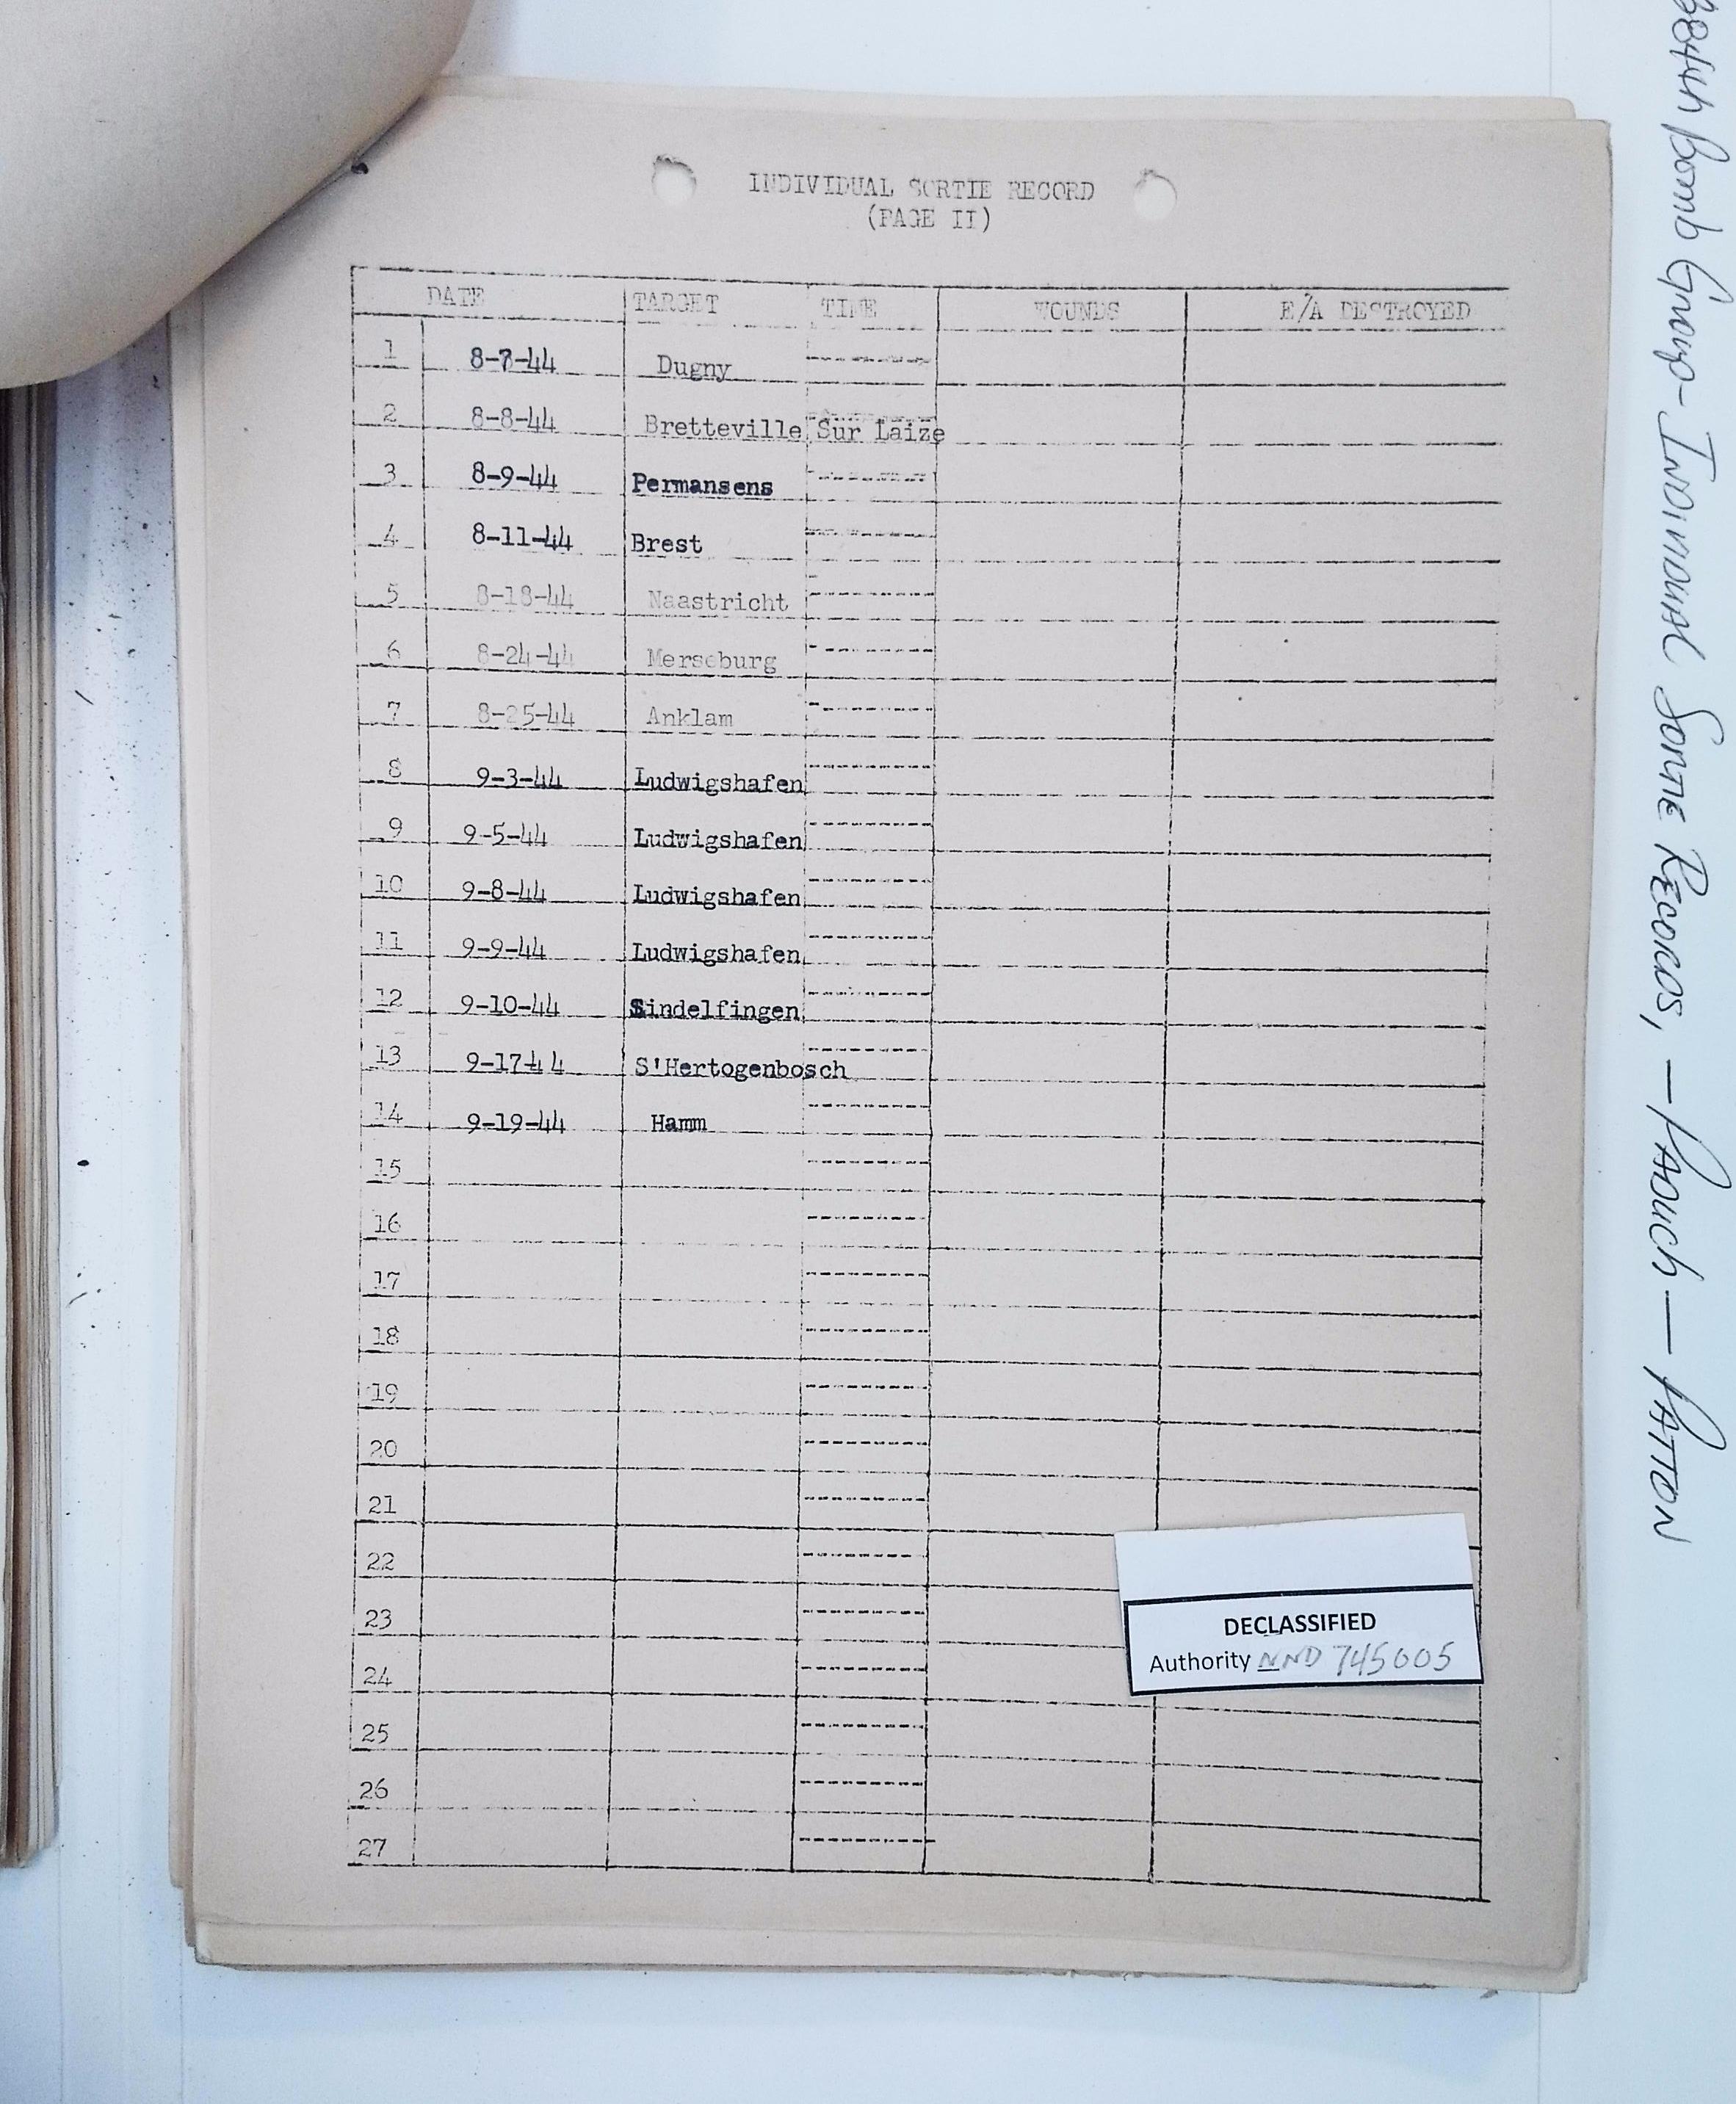 INDIVIDUAL SORTIE RECORD
(PAGE II)
DATE TARGET TIME WOUNDS E/A DESTROYED
1 8-7-44 Dugny
2 8-8-44 Bretteville Sur Laize
3 8-9-44 Permansens
4 8-11-44 Brest
5 8-18-44 Naastricht
6 8-24-44 Merseburg
7 8-25-44 Anklam
8 9-3-44 Ludwigshafen
9 9-5-44 Ludwigshafen
10 9-8-44 Ludwigshafen
11 9-9-44 Ludwigshafen
12 9-10-44 Sindelfingen
13 9-17-44 S'Hertogenbosch
14 9-19-44 Hamm
15
16
17
18
19
20
21
22
23
24
25
26
27
DECLASSIFIED
Authority NND 745005
384th Bomb Group - Individual Sortie Records, - Paduch - Patton